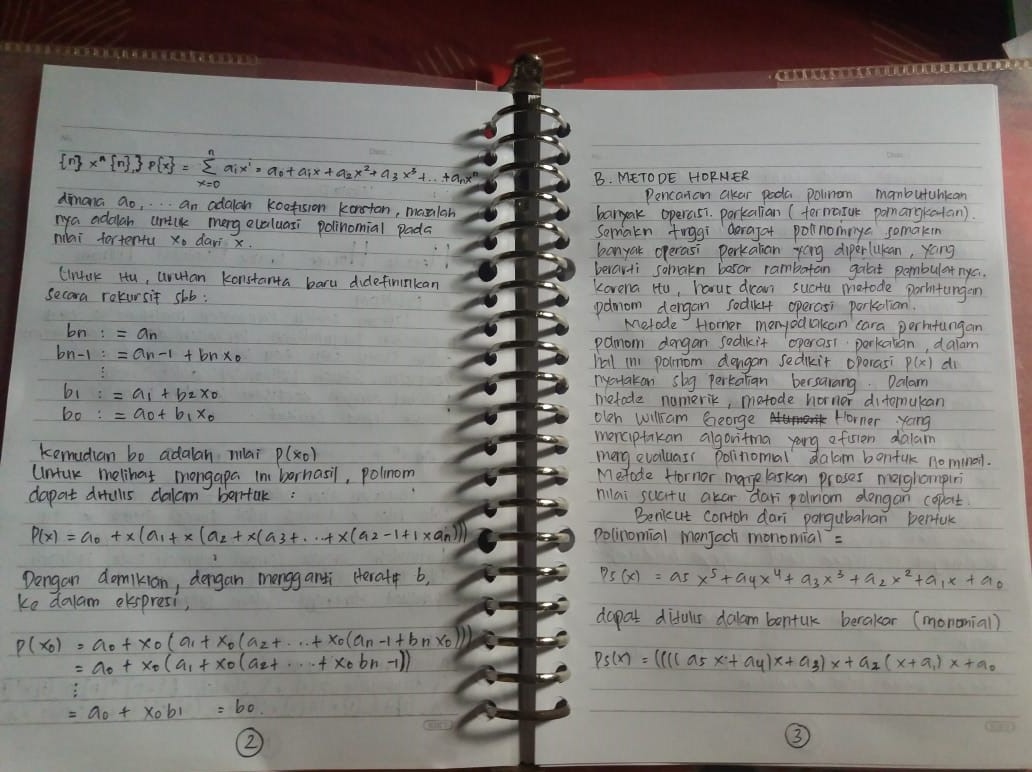 {n} xⁿ {n},} P{x} = Σ aixⁱ = a0 + a1x + a2x² + a3x³ + .. + anxⁿ
n
x=0
dimana a0, ... an adalah koefision konstan, masalah
nya adalah untuk mengevaluasi polinomial pada
nilai tertentu x0 dari x.
Untuk itu, urutan konstanta baru didefinisikan
secara rekursif sbb :
bn : = an
bn-1 : = an-1 + bn x0
⋮
b1 : = a1 + b2 x0
b0 : = a0 + b1 x0
kemudian b0 adalah nilai P(x0)
Untuk melihat mengapa ini berhasil, polinom
dapat ditulis dalam bentuk :
P(x) = a0 + x(a1 + x(a2 + x(a3 + ... + x(a2-1 + 1 x an)))
Dengan demikian, dengan mengganti iteratif b,
ke dalam ekspresi,
P(x0) = a0 + x0(a1 + x0(a2 + ... + x0(an-1 + bn x0)))
= a0 + x0(a1 + x0(a2 + ... + x0 bn-1))
⋮
= a0 + x0 b1 = b0.
2
B. METODE HORNER
Pencarian akar pada polinom membutuhkan
banyak operasi perkalian (termasuk pemangkatan).
Semakin tinggi derajat polinomnya semakin
banyak operasi perkalian yang diperlukan, yang
berarti semakin besar rambatan galat pembulatnya.
Karena itu, harus dicari suatu metode perhitungan
polinom dengan sedikit operasi perkalian.
Metode Horner menyediakan cara perhitungan
polinom dengan sedikit operasi perkalian, dalam
hal ini polinom dengan sedikit operasi P(x) di
nyatakan sbg perkalian bersarang. Dalam
metode numerik, metode horner ditemukan
oleh William George Numerik Horner yang
menciptakan algoritma yang efisien dalam
mengevaluasi polinomial dalam bentuk nominal.
Metode Horner menjelaskan proses menghampiri
nilai suatu akar dari polinom dengan cepat.
Berikut contoh dari pengubahan bentuk
polinomial menjadi monomial =
P5(x) = a5 x⁵ + a4x⁴ + a3 x³ + a2 x² + a1 x + a0
dapat ditulis dalam bentuk berakar (monomial)
P5(x) = ((((a5 x + a4)x + a3)x + a2(x + a1)x + a0
3